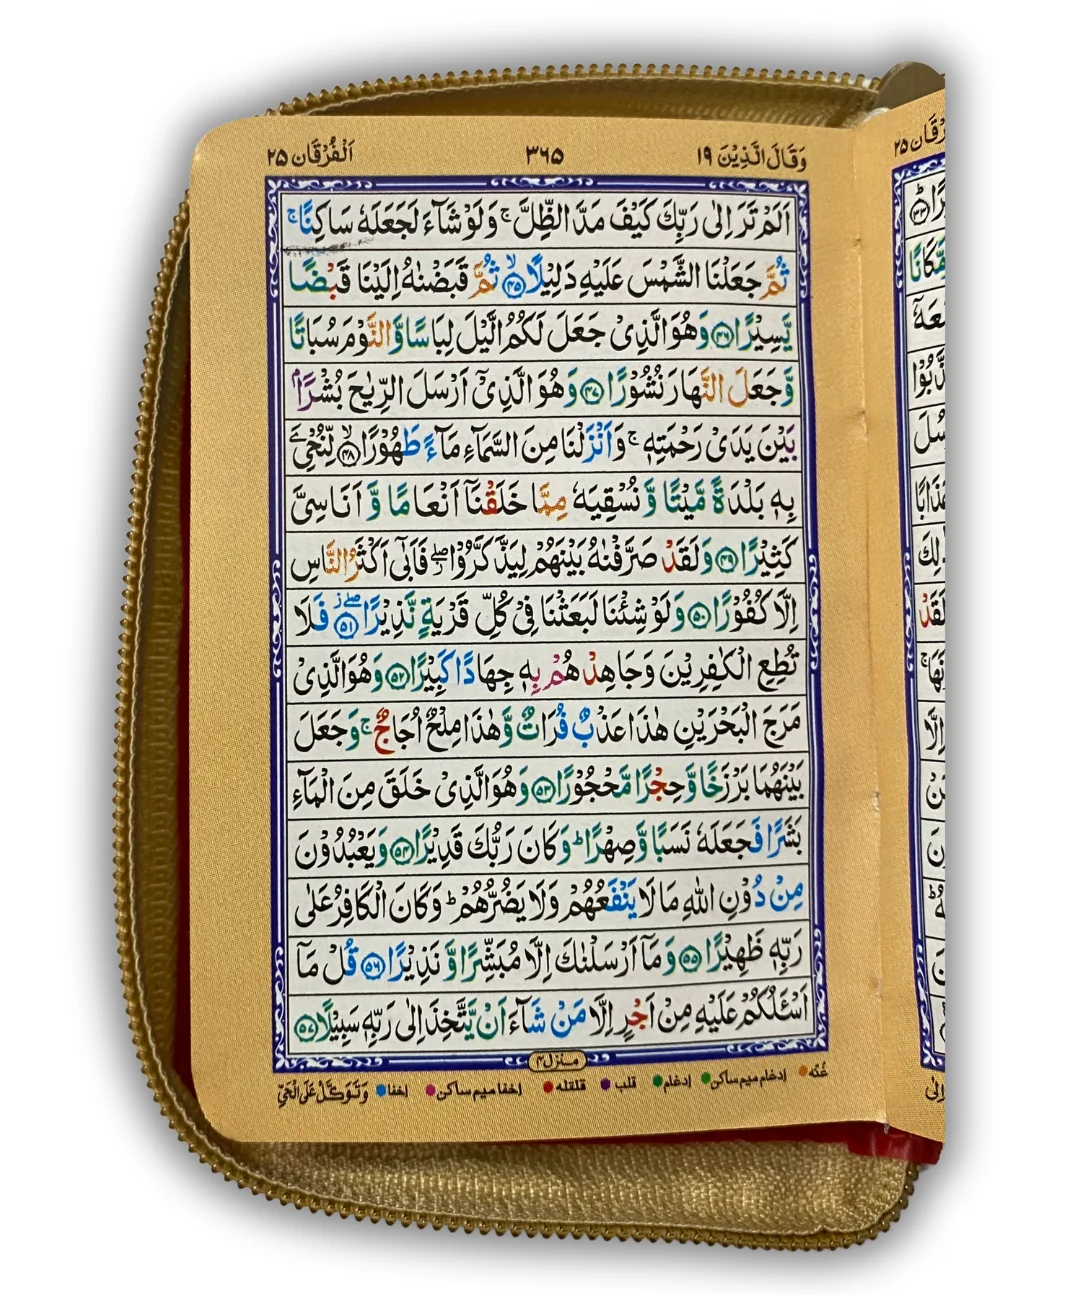 وَقَالَ الَّذِيْنَ ١٩ ٣٦٥ اَلْفُرْقَان ٢٥
اَلَمْ تَرَ اِلٰى رَبِّكَ كَيْفَ مَدَّ الظِّلَّ ۚ وَلَوْ شَآءَ لَجَعَلَهٗ سَاكِنًا ۚ
ثُمَّ جَعَلْنَا الشَّمْسَ عَلَيْهِ دَلِيْلًا ۙ﴿۴۵﴾ ثُمَّ قَبَضْنٰهُ اِلَيْنَا قَبْضًا
يَّسِيْرًا ﴿۴۶﴾ وَهُوَ الَّذِىْ جَعَلَ لَكُمُ الَّيْلَ لِبَاسًا وَّالنَّوْمَ سُبَاتًا
وَّجَعَلَ النَّهَارَ نُشُوْرًا ﴿۴۷﴾ وَهُوَ الَّذِىْۤ اَرْسَلَ الرِّيٰحَ بُشْرًاۢ
بَيْنَ يَدَىْ رَحْمَتِهٖ ۚ وَاَنْزَلْنَا مِنَ السَّمَآءِ مَآءً طَهُوْرًا ۙ﴿۴۸﴾ لِّنُحْیِۦَ
بِهٖ بَلْدَةً مَّيْتًا وَّنُسْقِيَهٗ مِمَّا خَلَقْنَاۤ اَنْعَامًا وَّاَنَاسِىَّ
كَثِيْرًا ﴿۴۹﴾ وَلَقَدْ صَرَّفْنٰهُ بَيْنَهُمْ لِيَذَّكَّرُوْا ۖ فَاَبٰٓى اَكْثَرُ النَّاسِ
اِلَّا كُفُوْرًا ﴿۵۰﴾ وَلَوْ شِئْنَا لَبَعَثْنَا فِىْ كُلِّ قَرْيَةٍ نَّذِيْرًا ۖ﴿۵۱﴾ فَلَا
تُطِعِ الْكٰفِرِيْنَ وَجَاهِدْهُمْ بِهٖ جِهَادًا كَبِيْرًا ﴿۵۲﴾ وَهُوَ الَّذِىْ
مَرَجَ الْبَحْرَيْنِ هٰذَا عَذْبٌ فُرَاتٌ وَّهٰذَا مِلْحٌ اُجَاجٌ ۚ وَجَعَلَ
بَيْنَهُمَا بَرْزَخًا وَّحِجْرًا مَّحْجُوْرًا ﴿۵۳﴾ وَهُوَ الَّذِىْ خَلَقَ مِنَ الْمَآءِ
بَشَرًا فَجَعَلَهٗ نَسَبًا وَّصِهْرًا ؕ وَكَانَ رَبُّكَ قَدِيْرًا ﴿۵۴﴾ وَيَعْبُدُوْنَ
مِنْ دُوْنِ اللّٰهِ مَا لَا يَنْفَعُهُمْ وَلَا يَضُرُّهُمْ ؕ وَكَانَ الْكَافِرُ عَلٰى
رَبِّهٖ ظَهِيْرًا ﴿۵۵﴾ وَمَاۤ اَرْسَلْنٰكَ اِلَّا مُبَشِّرًا وَّنَذِيْرًا ﴿۵۶﴾ قُلْ مَاۤ
اَسْـَٔلُكُمْ عَلَيْهِ مِنْ اَجْرٍ اِلَّا مَنْ شَآءَ اَنْ يَّتَّخِذَ اِلٰى رَبِّهٖ سَبِيْلًا ﴿۵۷﴾
منزل۴
غُنّه ادغام میم ساکن ادغام قلب قلقله اخفا میم ساکن اخفا وَتَوَكَّلْ عَلَى الْحَيِّ